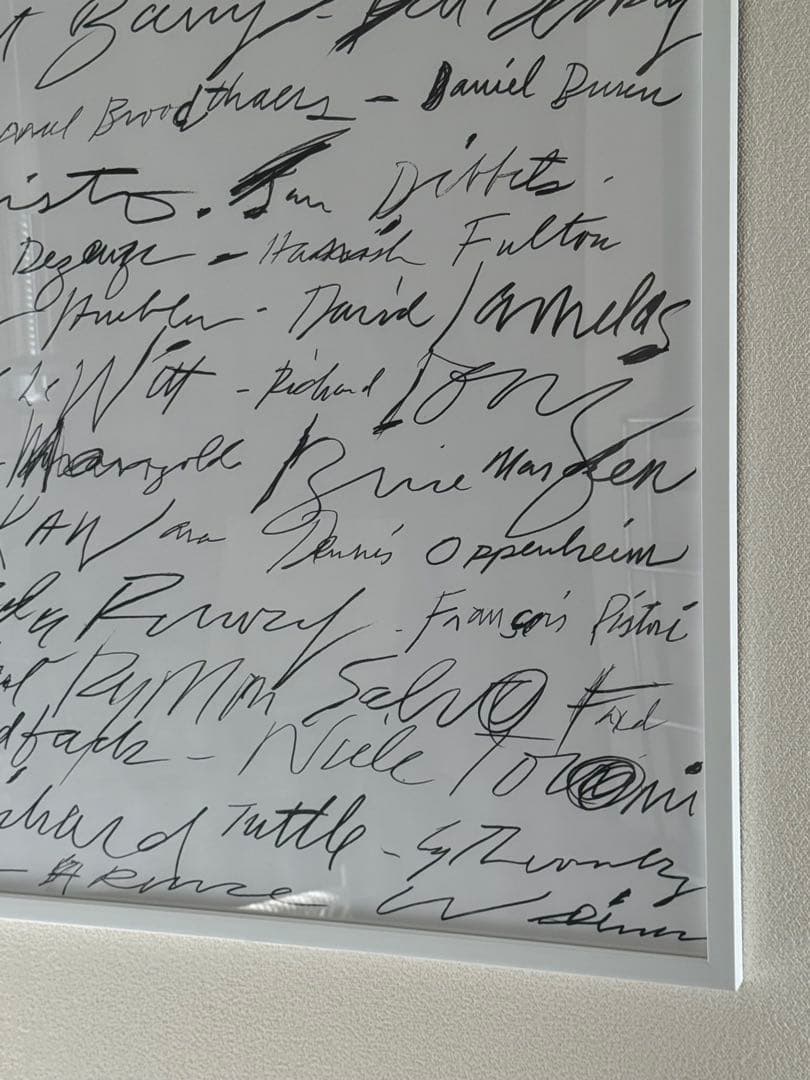 t Barry -
Broodthaers - Daniel Buren
isto. Jan Dibbets.
Dezeuze - Hamish Fulton
Huebler - David Lamelas
Le Witt - Richard Long
- Mangold Brice Marden
KAWara Dennis Oppenheim
- François Pistré
Rymon Salvo Fred
dfack - Niele Toroni
chard Tuttle - Cy Twombly
Weiner